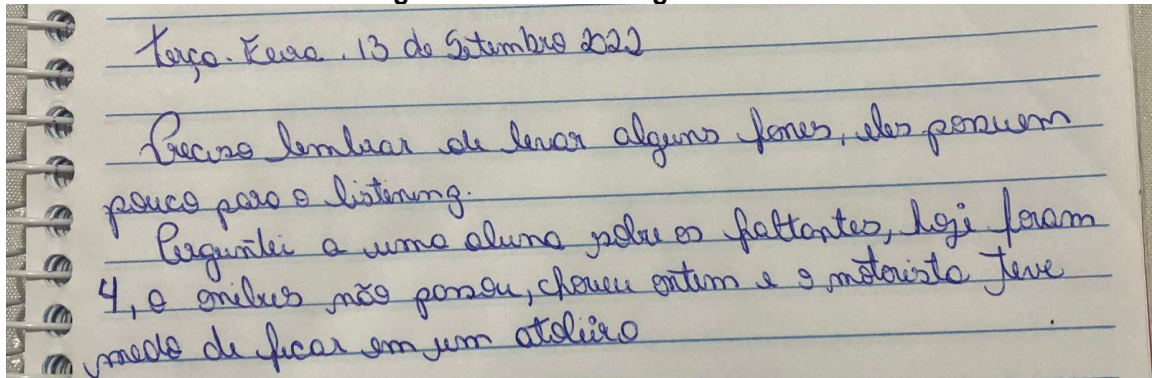 Terça-Feira, 13 de Setembro 2022
Preciso lembrar de levar alguns fones, eles possuem
pouco para o listening.
Perguntei a uma aluna sobre os faltantes, hoje foram
4, o ônibus não passou, choveu ontem e o motorista teve
medo de ficar em um atoleiro